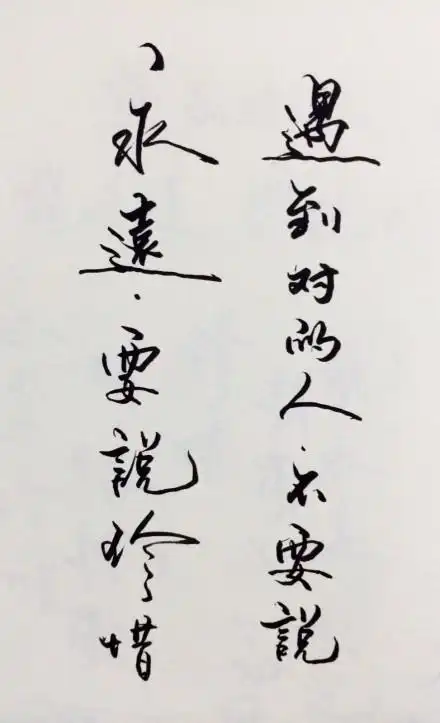 遇到对的人.不要說
永遠.要說珍惜